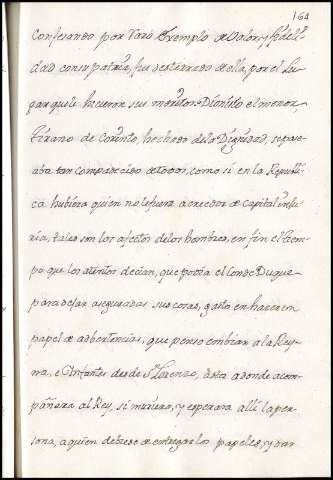 164
Confesando por raro Exemplo de Valor, y fideli
dad con su patria, fue desterrado de ella, por el lu
gar que le hicieron sus meritos. Dionisio el menor
tirano de Corinto, hechado de la Dignidad, se pase
aba tan compadecido de todos, como si en la Republi
ca hubiera quien no le fuera acreedor de Capital inju
ria, tales son los afectos de los hombres, en fin el tiem
po que los atentos decian, que podia el Conde Duque
para dejar aseguradas sus cosas, gasto en hacer un
papel de adbertencias, que penso embiar a la Rey
na, e Infantes desde Sn. Lorenzo, hasta adonde acom
pañara al Rey, si muriera, y esperara alli la per
sona, a quien debiese de entregar los papeles, y dar